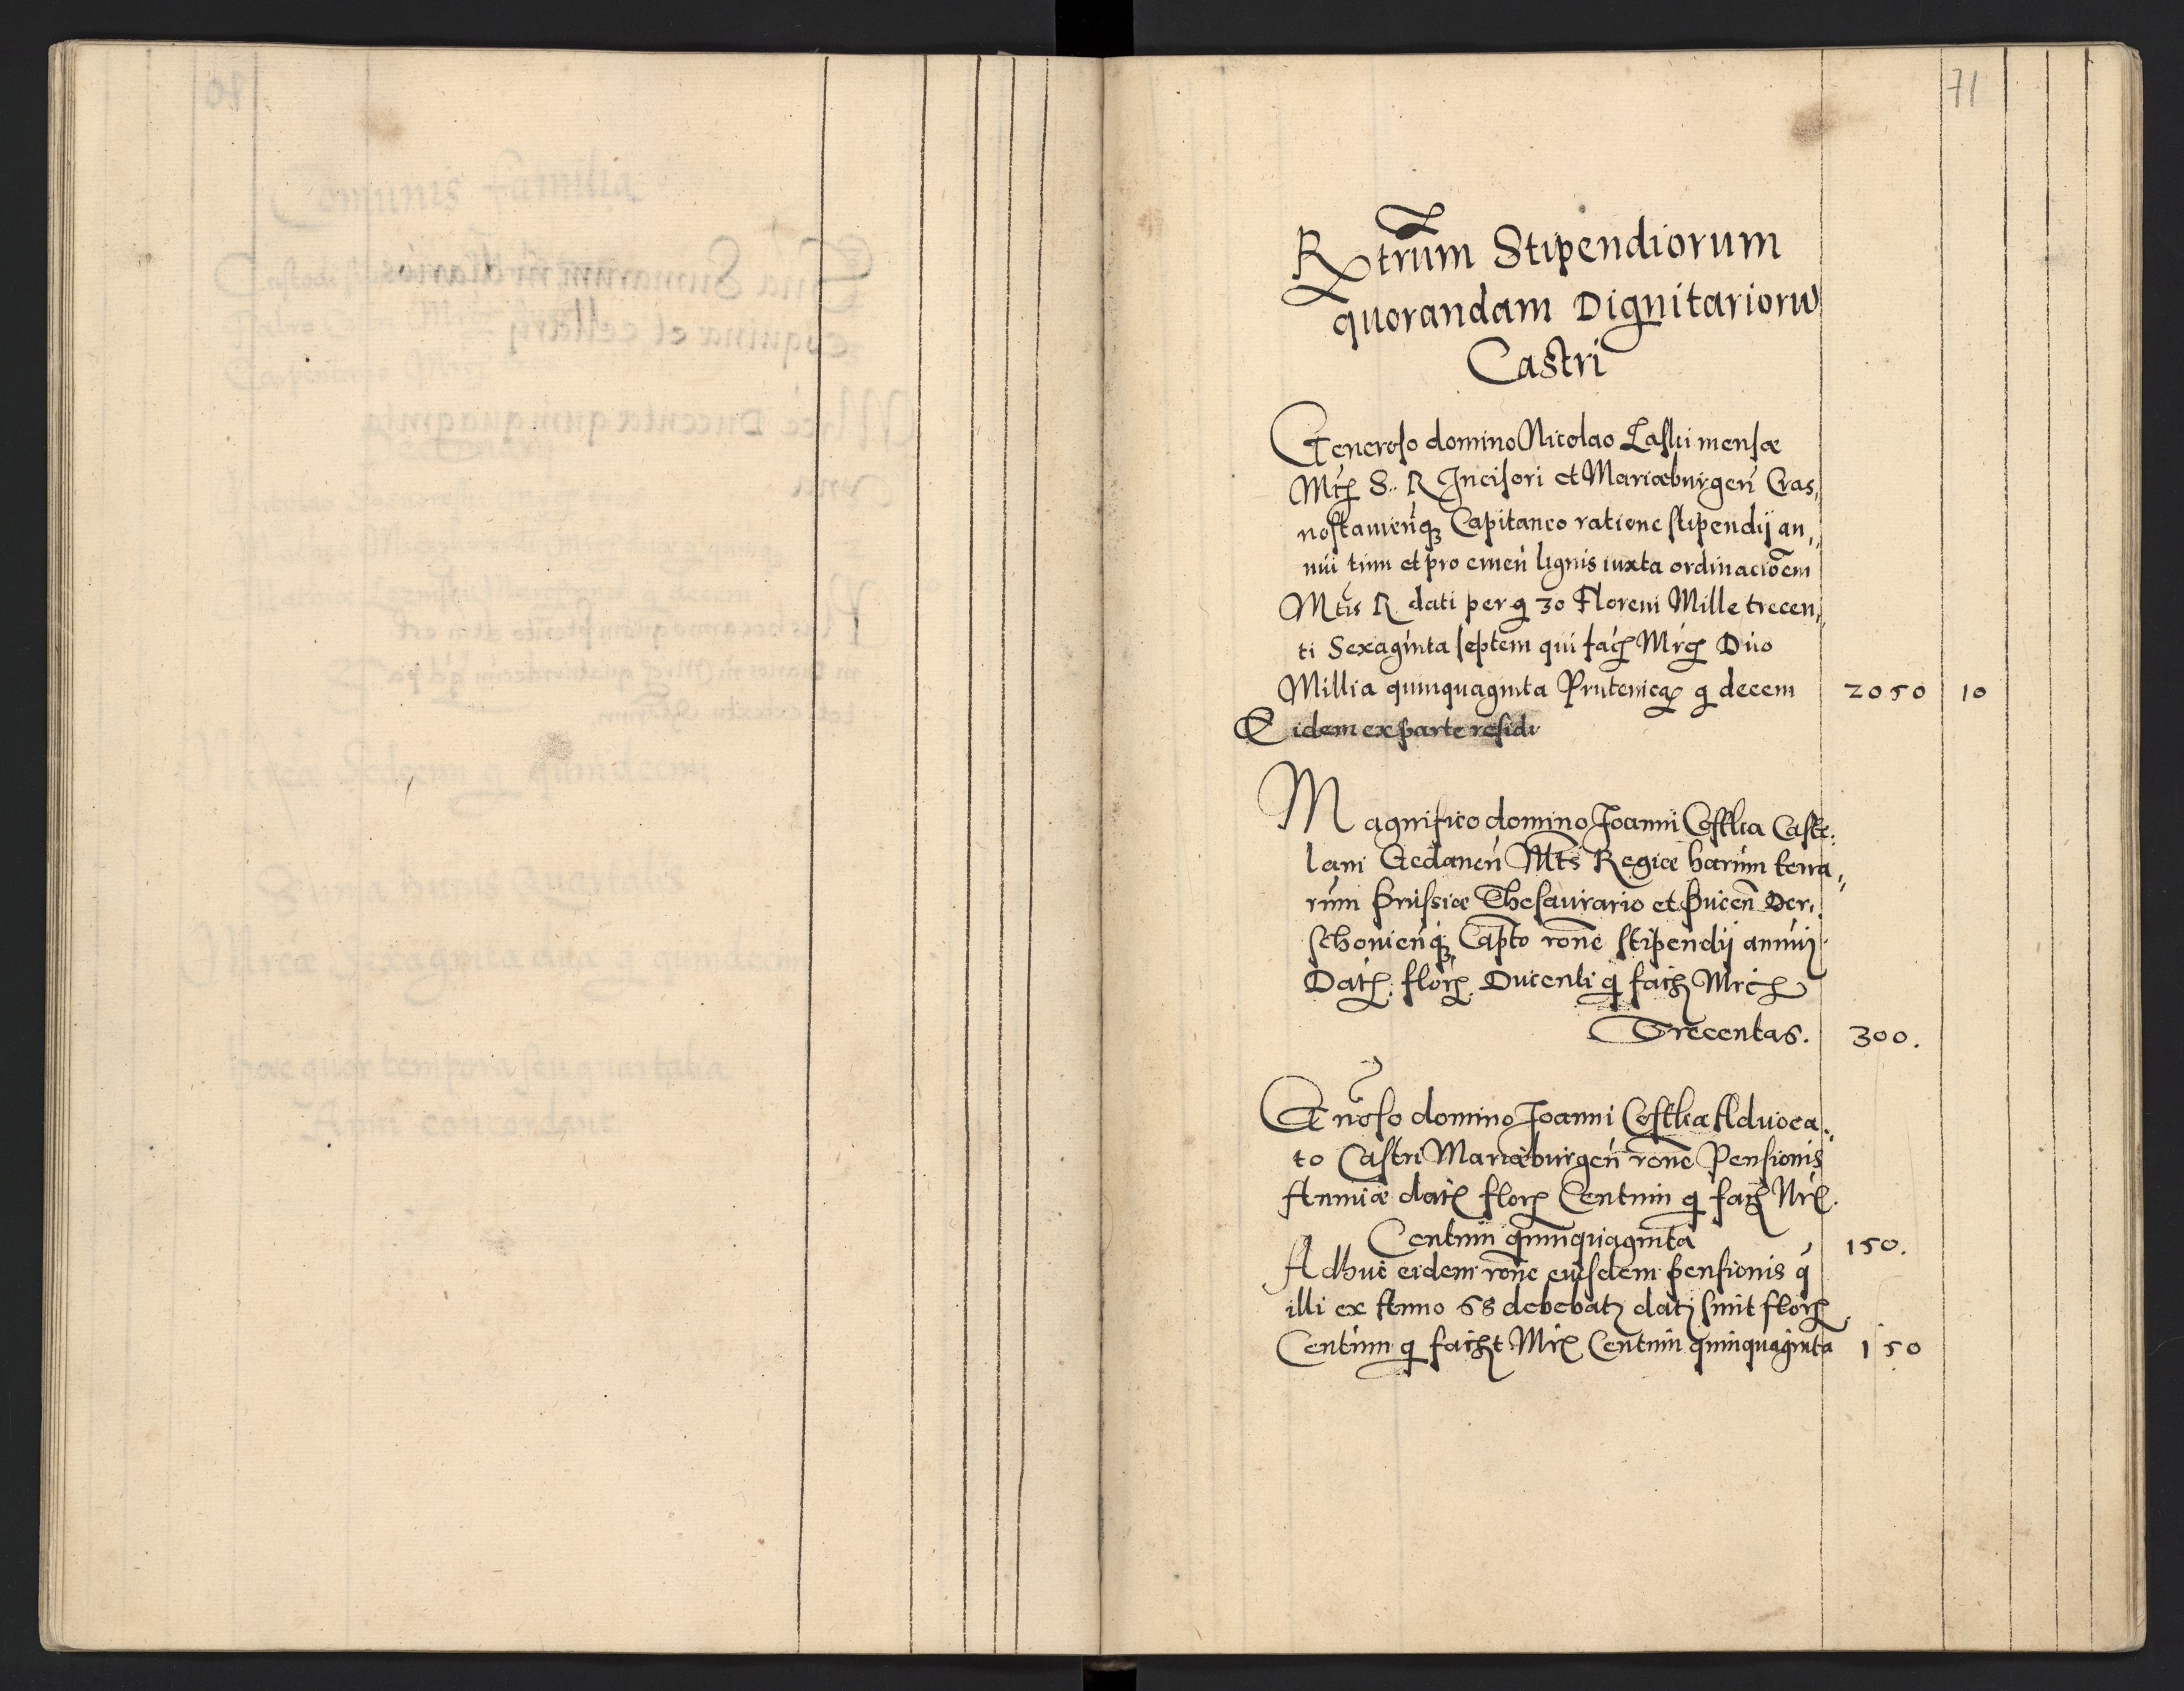 71
Rxtrum Stipendiorum
quorandam Dignitarioru
Castri
Generoso domino Nicolao Laski mensæ
S. R Incisori et Mariæburgen Cras,
nostauienq Capitaneo ratione stipendij an,,
nui tum et pro emen lignis iuxta ordinacioem
Mtis R. dati per g 30 Floreni Mille trecen,,
ti Sexaginta septem qui Duo
Millia quinquaginta g decem 2050 10
Eidem ex parte residi
Magnifico domino Joanni Costka Caste:
lani Gedanen Mts Regiæ harum terra,,
rum Prussiæ Thesaurario et Pucen Der,
schouienq Capto rone stipendij annuj
Ducenti q
Trecentas. 300.
Gnoso domino Joanni Costka Aduoca,,
to Castri Mariæburgen rone Pensionis
Annuæ Centum q
Centum quinquaginta 150.
Adhuc eidem rone eiusdem pensionis q
illi ex Anno 68 sunt
Centum q Centum quinquaginta 150